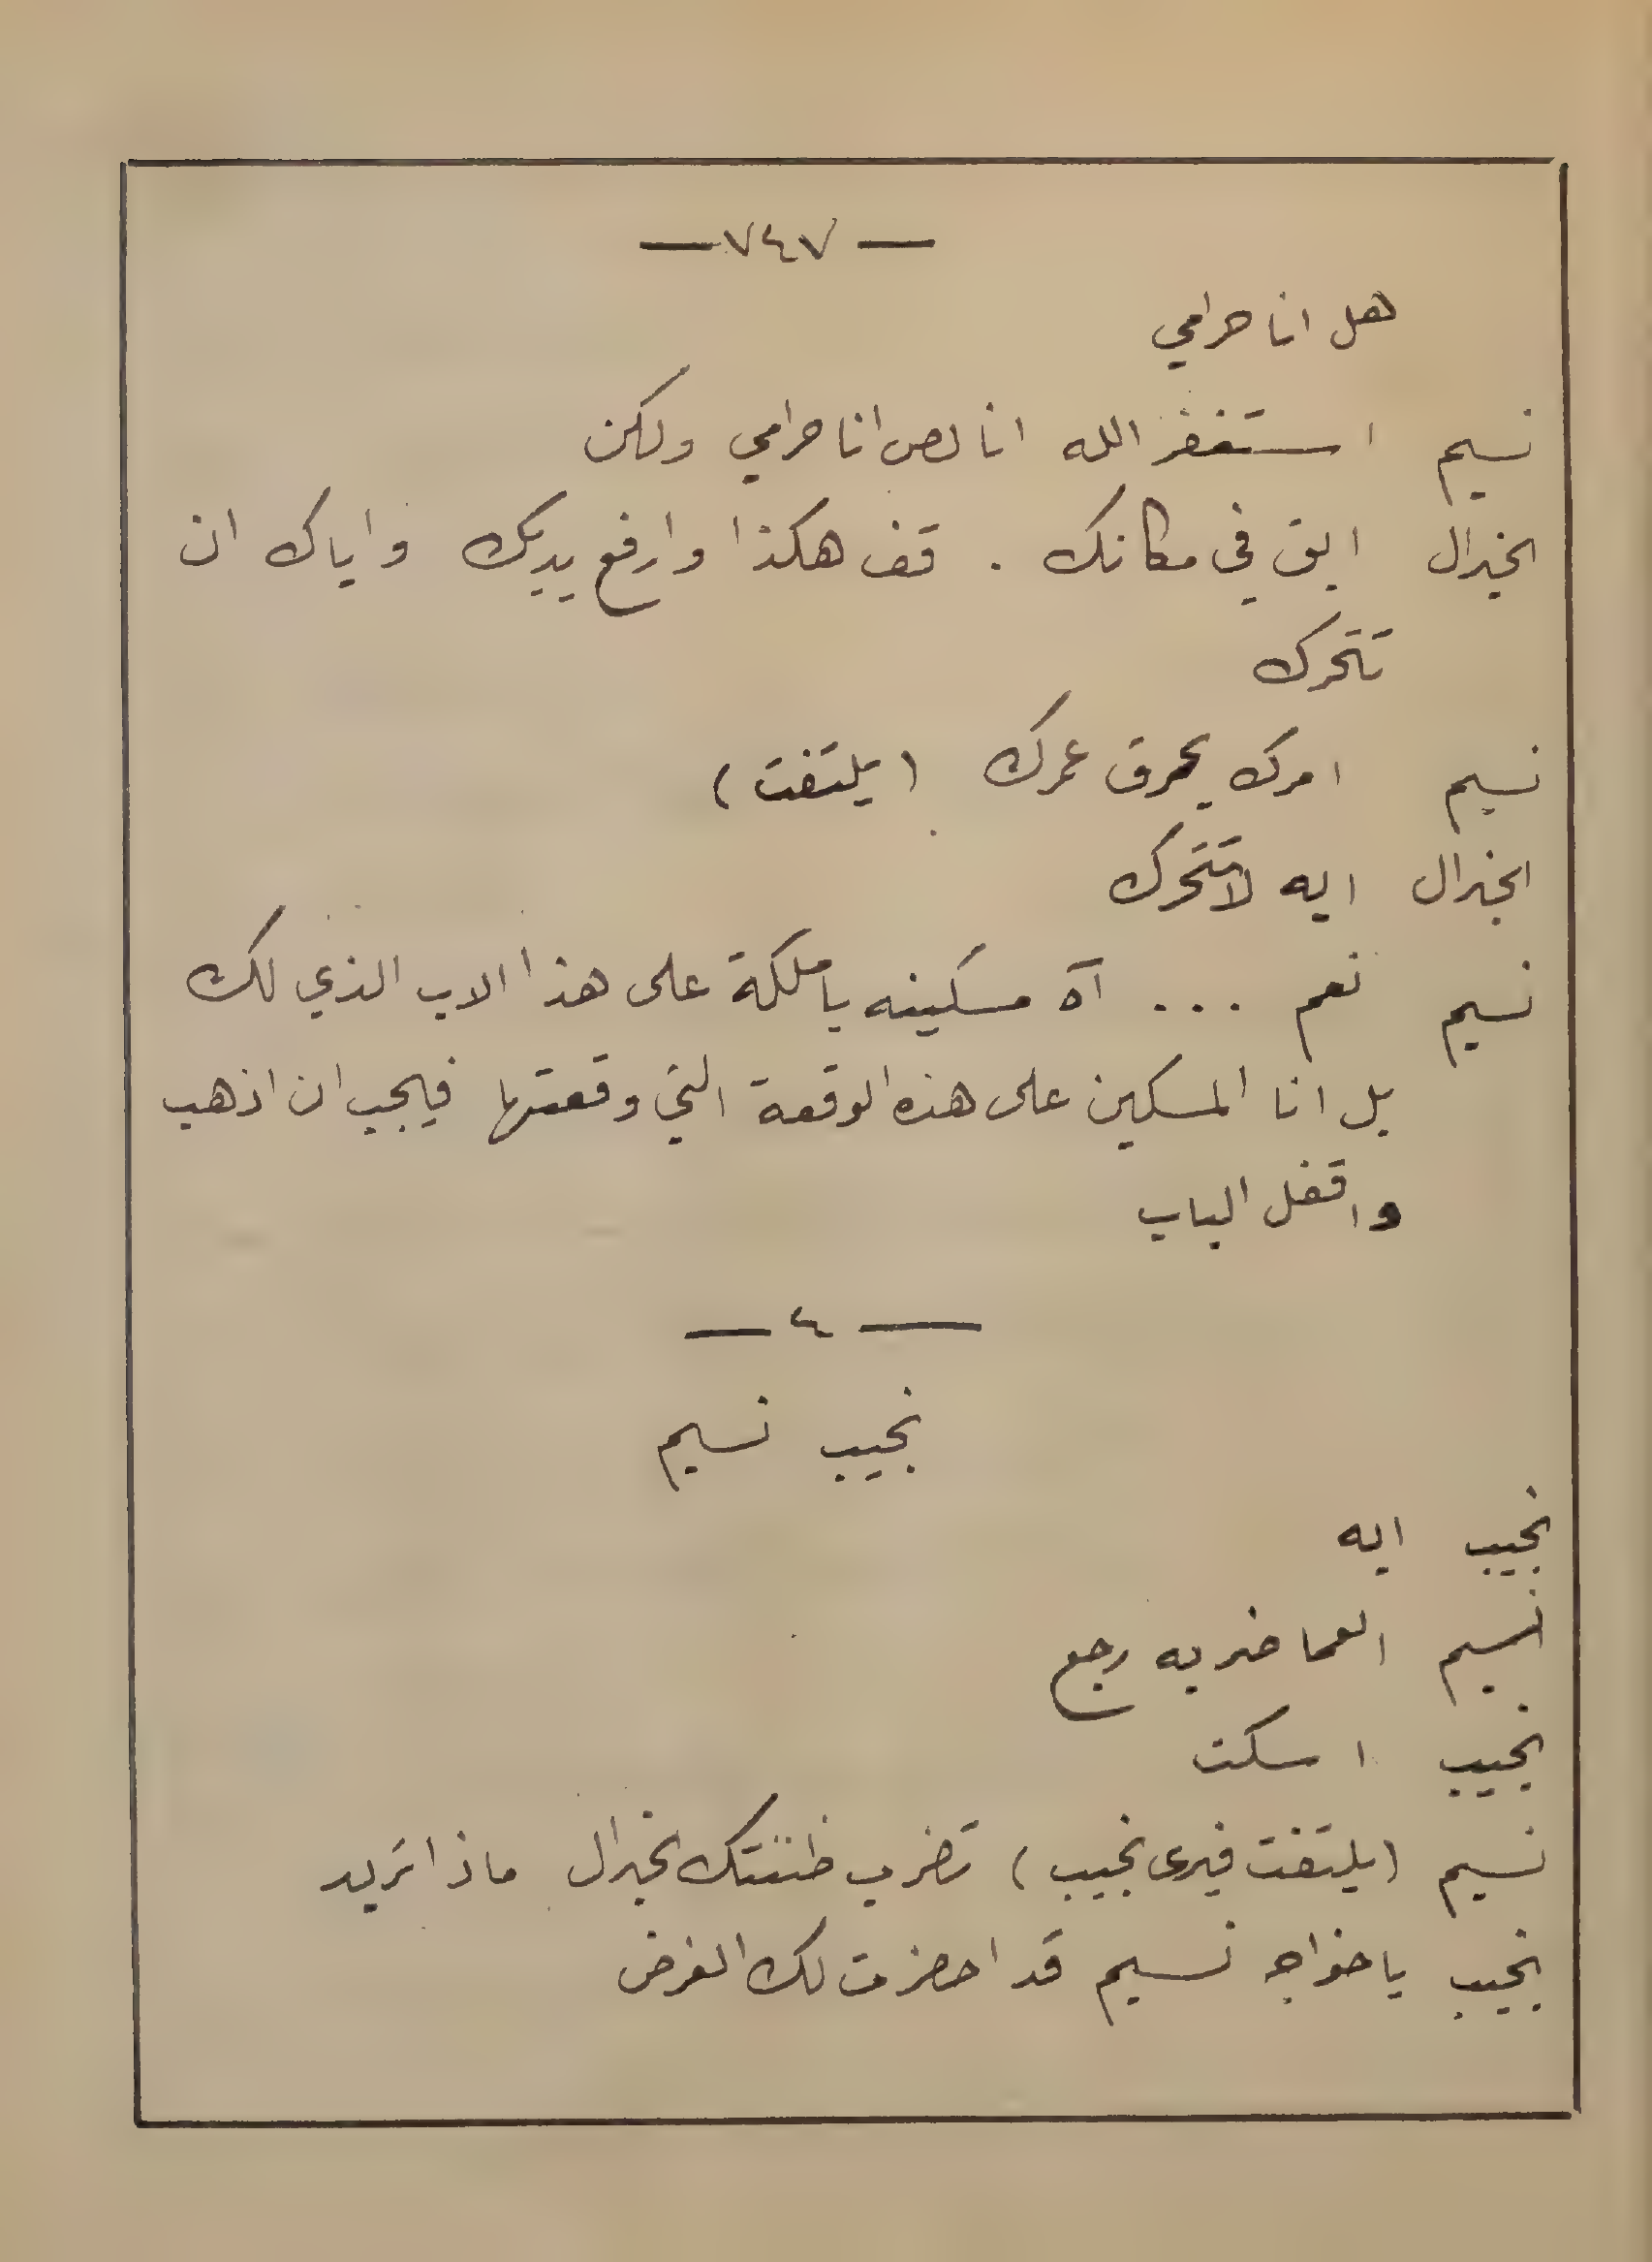 — ٧٤٧ —
هل انا حرامي
نسيم استغفر الله انا لص انا حرامي ولكن
الجنرال ابق في مكانك . قف هكذا وارفع يديك واياك ان
تتحرك
نسيم امرك يحرق عمرك (يلتفت)
الجنرال ايه لا تتحرك
نسيم نعم ... آه مسكينه يا ملكة على هذا الاب الذي لك
بل انا المسكين على هذه الوقعة التي وقعتها فيجب ان اذهب
واقفل الباب
— ٤ —
نجيب نسيم
نجيب ايه
نسيم العما ضربه رجع
نجيب اسكت
نسيم (يلتفت فيرى نجيب) تضرب ظننتك الجنرال ماذا تريد
نجيب يا خواجه نسيم قد احضرت لك الغرض